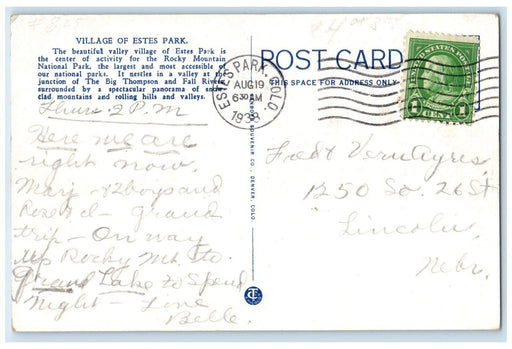 VILLAGE OF ESTES PARK.
The beautiful valley village of Estes Park is
the center of activity for the Rocky Mountain
National Park, the largest and most accessible of
our national parks. It nestles in a valley at the
junction of The Big Thompson and Fall Rivers
surrounded by a spectacular panorama of snow
clad mountains and rolling hills and valleys.
Thurs. 2 P.M
Here we are
right now.
Marj - 2 boys and
Rose d - grand
trip - On way
up Rocky Mt. to
Grand Lake to spend
Night - Love
Belle.
POST CARD
THIS SPACE FOR ADDRESS ONLY
ESTES PARK, COLO.
AUG 19
6 30 AM
1938
UNITED STATES POSTAGE
1 CENT 1
SOUVENIR CO., DENVER, COLO.
Fred Vern Ayres
1250 So. 26 St
Lincoln,
Nebr.